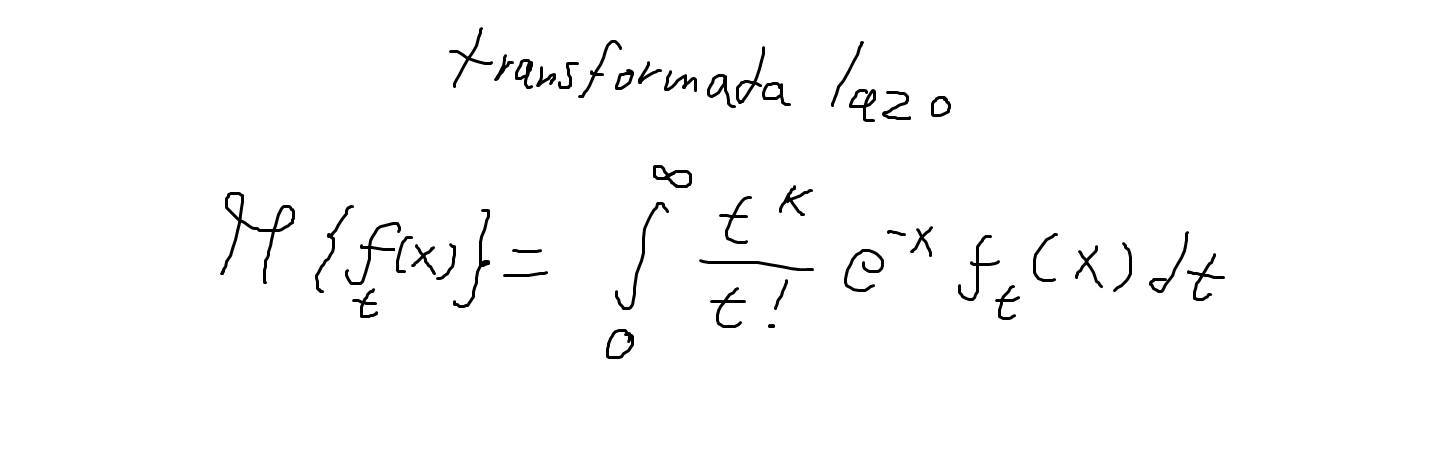 transformada lazo
M{f_t(x)} = ∫_0^∞ t^k/t! e^{-x} f_t(x) dt